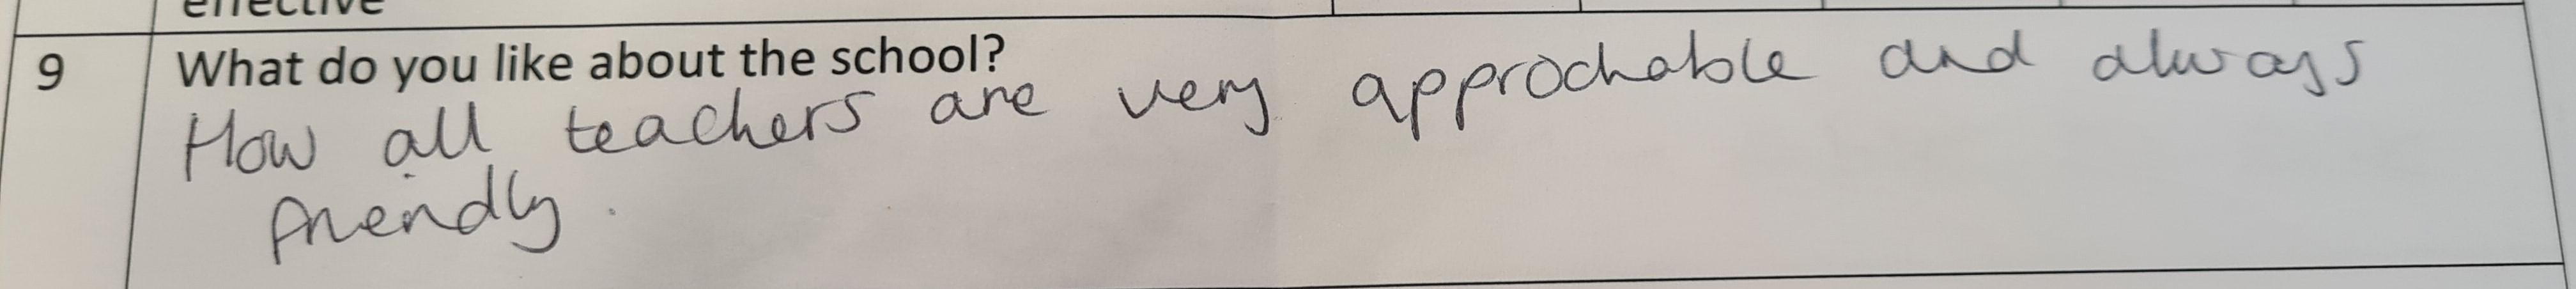 effective
9 What do you like about the school?
How all teachers are very approchable and always
friendly.